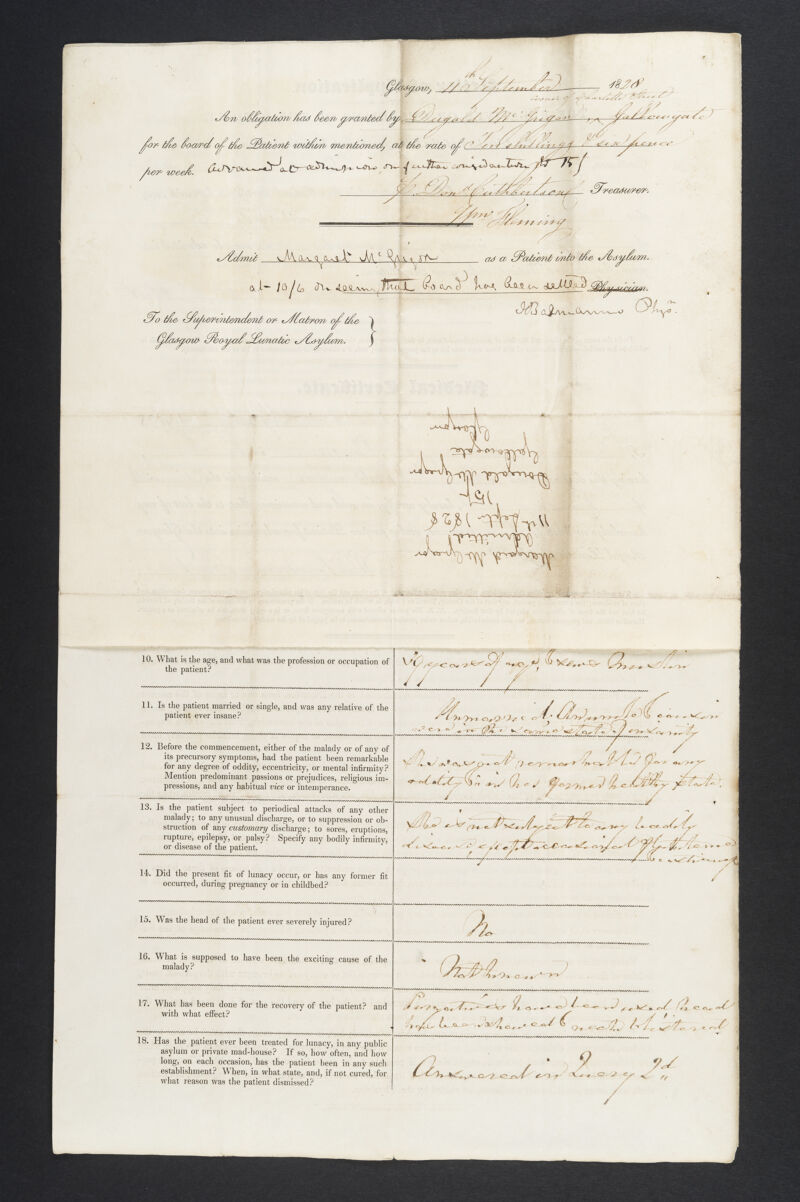 Glasgow, 11th September 1828
corner of Charlotte Street
An obligation has been granted by Dugald McGrigor in Gallowgate
for the board of the Patient within mentioned, at the rate of Ten shillings & sixpence
per week. advanced at admission on further consideration to 15/
Don. Cuthbertson Treasurer.
Wm Fleming
Admit Margaret McGrigor as a Patient into the Asylum.
at 10/6 on seeing that board has been settled Physician.
JBalmanno Physn.
To the Superintendent or Matron of the
Glasgow Royal Lunatic Asylum.
Margaret McGregor
Admitted
11th Septr 1828
15/
Dougald McGregor
Gallowgate
Glasgow
10. What is the age, and what was the profession or occupation of
the patient?
years of age, & sews Muslin
11. Is the patient married or single, and was any relative of the
patient ever insane?
Unmarried. An uncle & cousin
were in the same state of insanity
12. Before the commencement, either of the malady or of any of
its precursory symptoms, had the patient been remarkable
for any degree of oddity, eccentricity, or mental infirmity?
Mention predominant passions or prejudices, religious im-
pressions, and any habitual vice or intemperance.
She was not remarkable for any
oddity in her formed healthy state.
13. Is the patient subject to periodical attacks of any other
malady; to any unusual discharge, or to suppression or ob-
struction of any customary discharge; to sores, eruptions,
rupture, epilepsy, or palsy? Specify any bodily infirmity,
or disease of the patient.
She is not subject to any bodily
disease, except occasional
14. Did the present fit of lunacy occur, or has any former fit
occurred, during pregnancy or in childbed?
15. Was the head of the patient ever severely injured?
No
16. What is supposed to have been the exciting cause of the
malady?
Not known
17. What has been done for the recovery of the patient? and
with what effect?
Purgatives have been used, head
has been shaved & neck blistered.
18. Has the patient ever been treated for lunacy, in any public
asylum or private mad-house? If so, how often, and how
long, on each occasion, has the patient been in any such
establishment? When, in what state, and, if not cured, for
what reason was the patient dismissed?
Answered in Query 2d